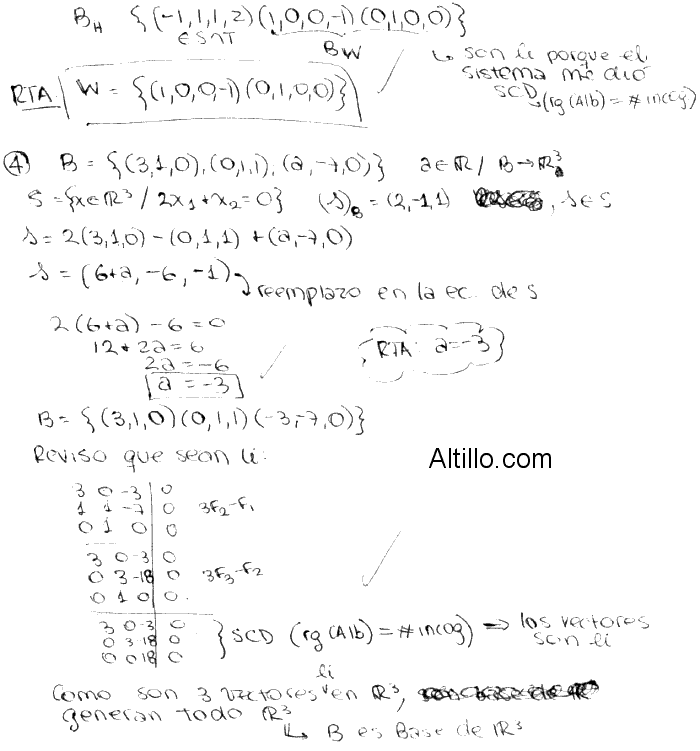 B_H {(-1,1,1,2)(1,0,0,-1)(0,1,0,0)}
∈ S∩T
BW
↳ son li porque el
sistema me dió
SCD
↳(rg(A|b) = #incóg)
RTA: W = {(1,0,0,-1)(0,1,0,0)}
④ B = {(3,1,0),(0,1,1),(a,-7,0)} a∈R / B→R³
S = {x∈R³ / 2x₁+x₂=0} (s)_B = (2,-1,1) , s∈S
s = 2(3,1,0) - (0,1,1) + (a,-7,0)
s = (6+a, -6, -1)
reemplazo en la ec. de S
2(6+a) - 6 = 0
12 + 2a = 6
2a = -6
a = -3
RTA: a = -3
B = {(3,1,0)(0,1,1)(-3,-7,0)}
Reviso que sean li:
Altillo.com
3 0 -3 | 0
1 1 -7 | 0 3F₂-F₁
0 1 0 | 0
3 0 -3 | 0
0 3 -18 | 0 3F₃-F₂
0 1 0 | 0
3 0 -3 | 0
0 3 -18 | 0 } SCD (rg(A|b) = #incóg) → los vectores
0 0 18 | 0 son li
Como son 3 vectores li en R³,
generan todo R³
↳ B es Base de R³